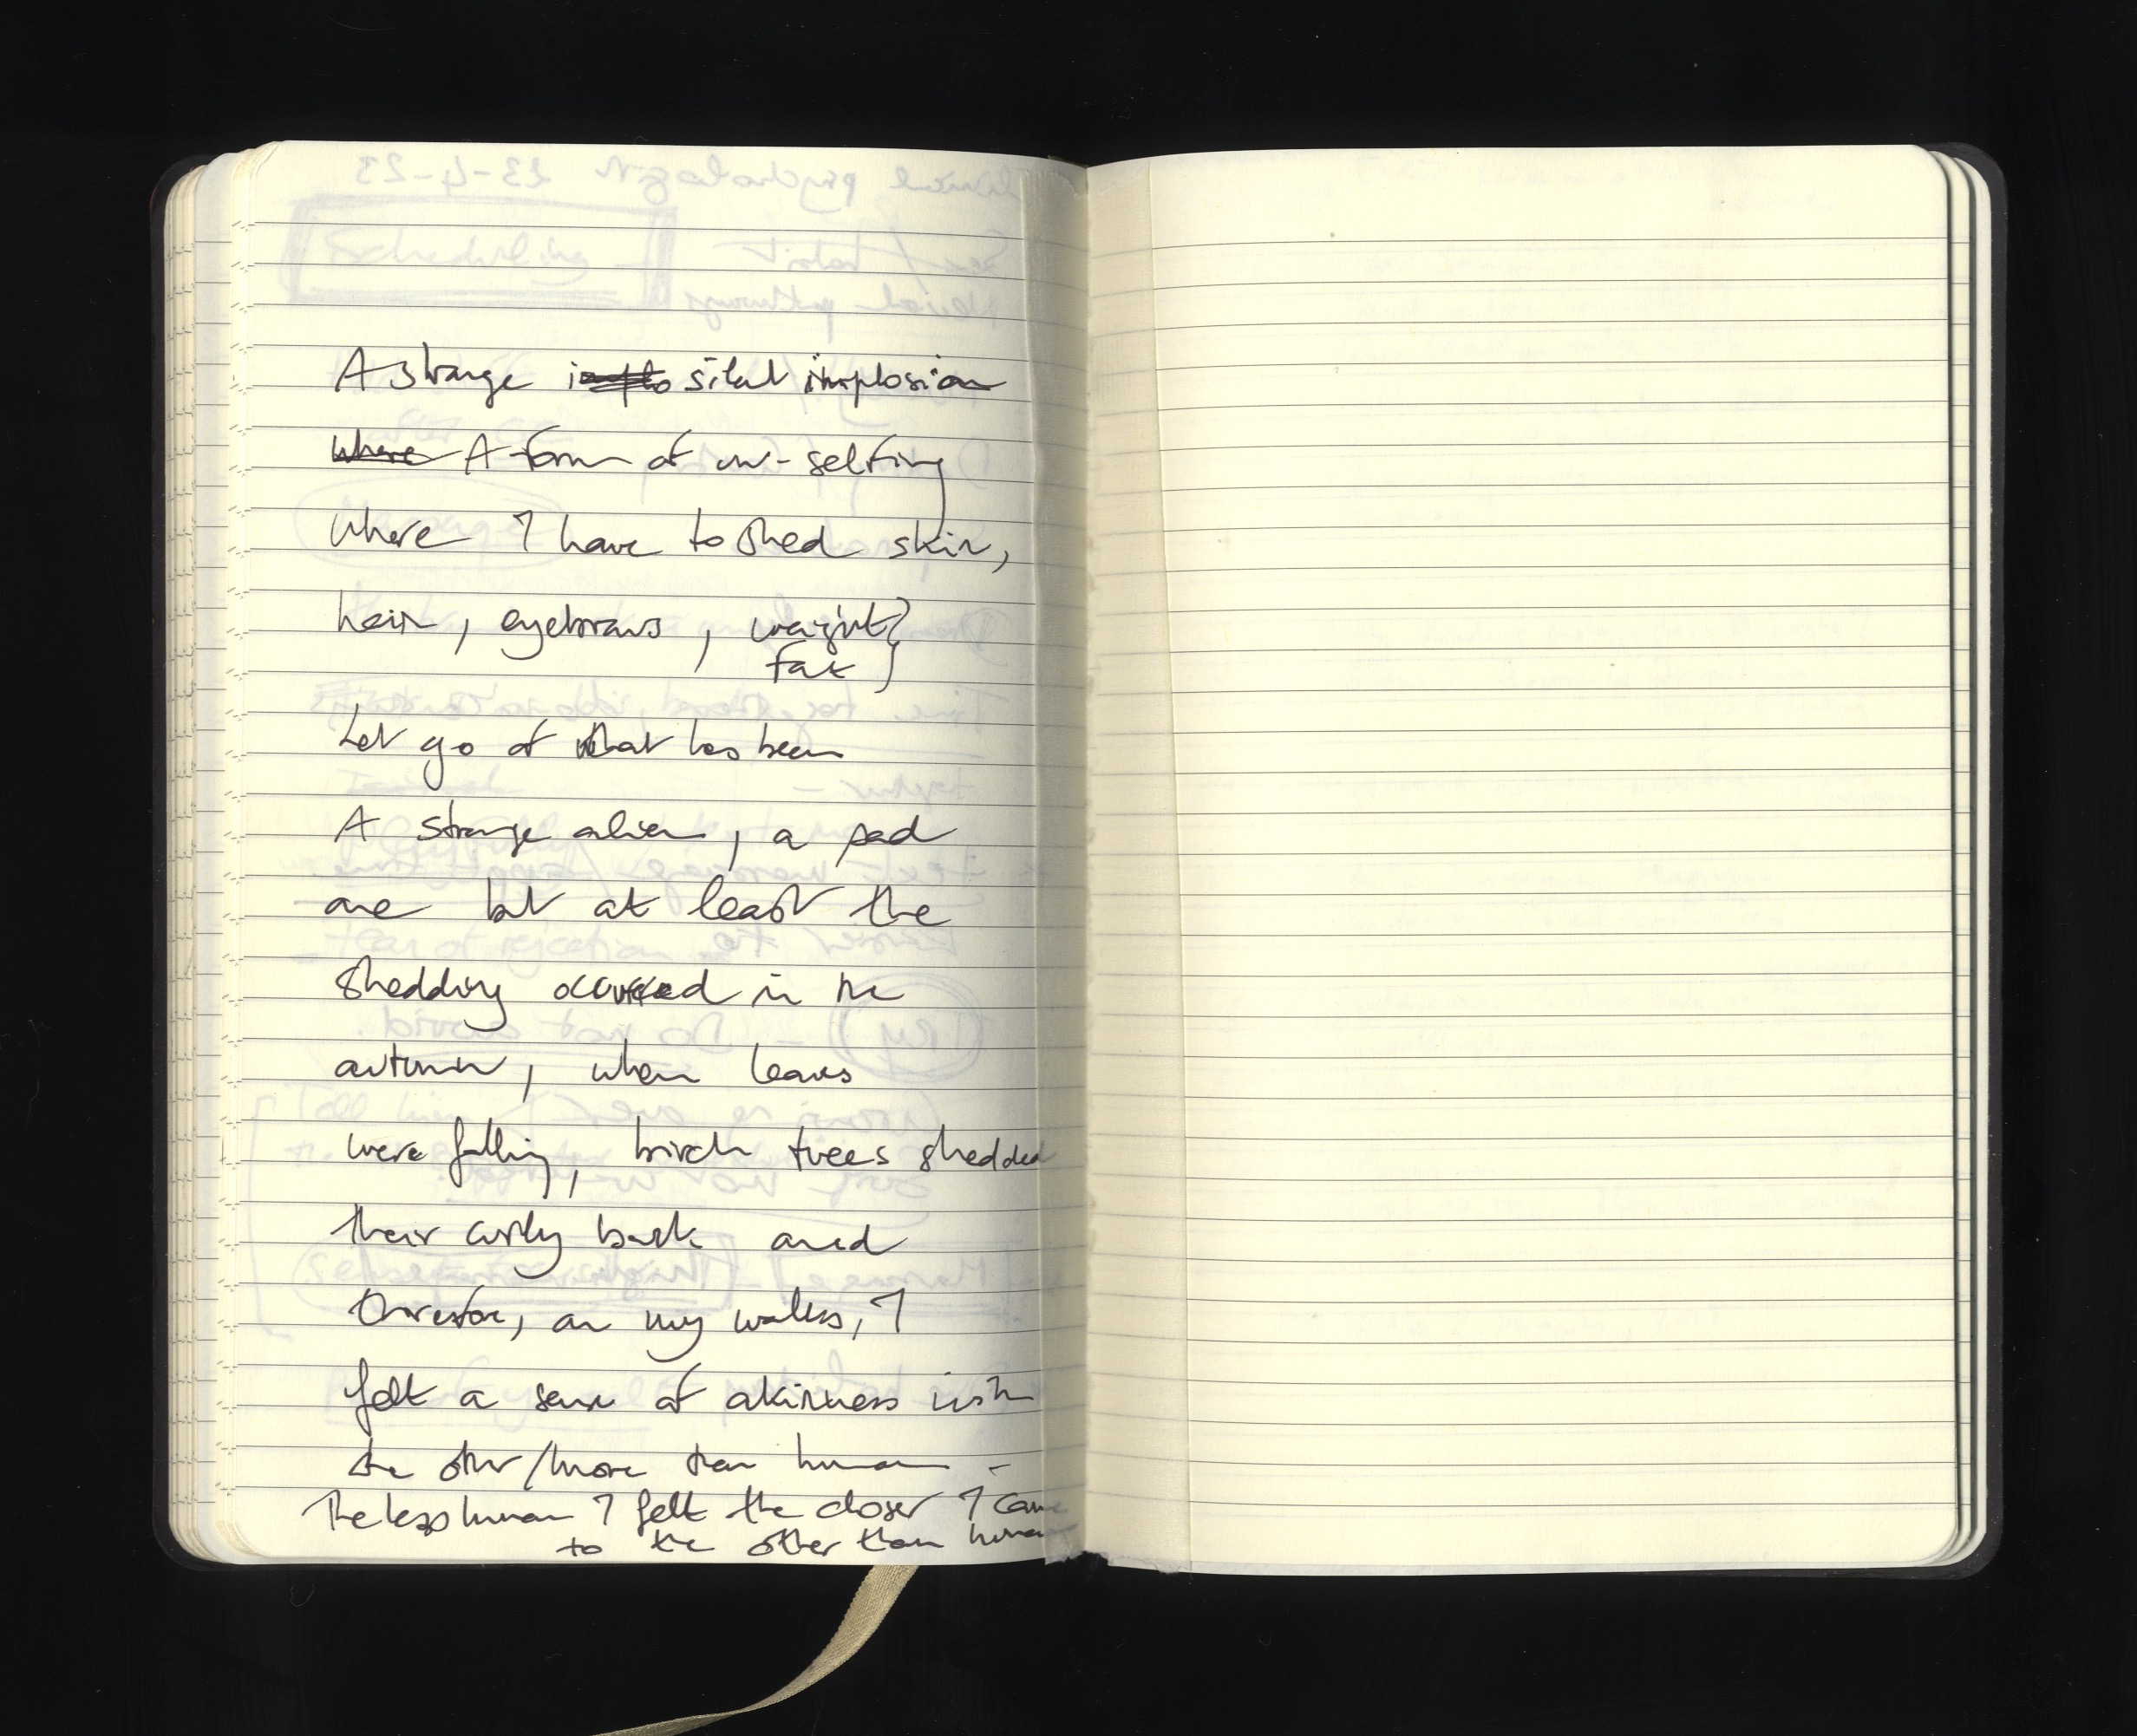 A strange implo silent implosion
where A form of un-selfing
where I have to shed skin,
hair, eyebrows, weight }
fat }
Let go of what has been
A strange alien, a sad
one but at least the
shedding occurred in the
autumn, when leaves
were falling, birch trees shedded
their curly bark and
therefore, on my walks, I
felt a sense of akinness with
the other/more than human -
The less human I felt the closer I came
to the other than human